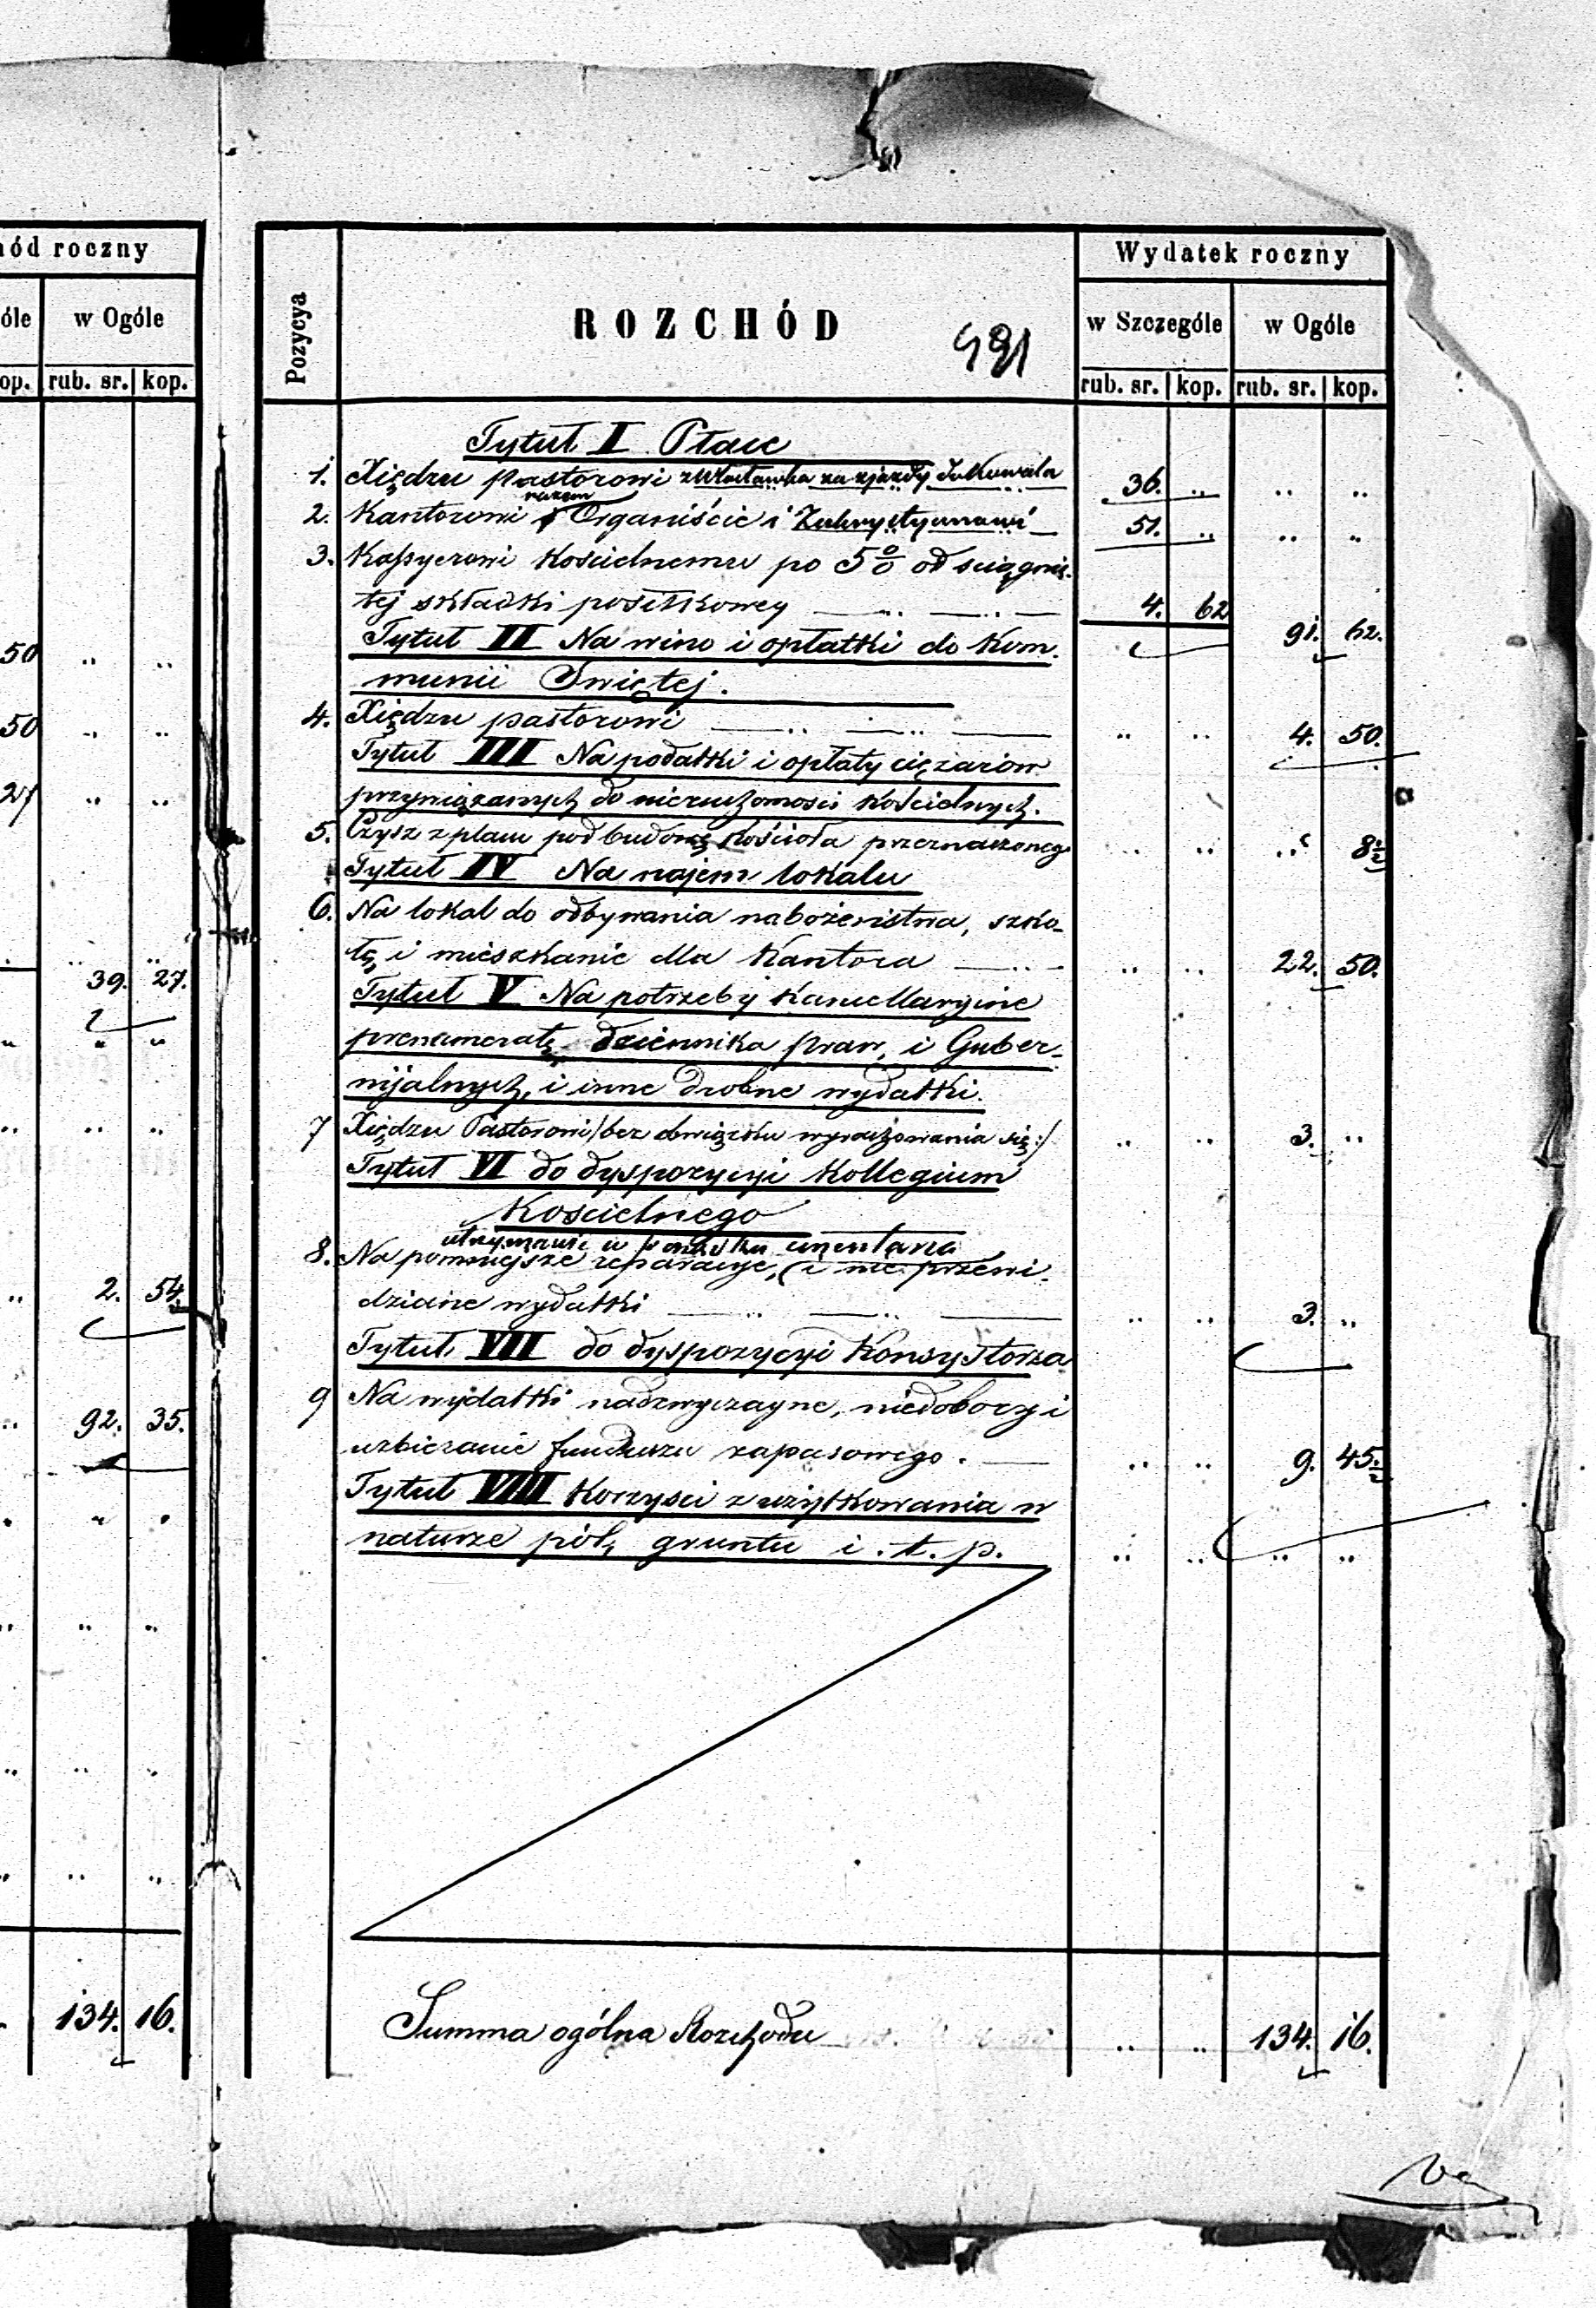 hód roczny
óle w Ogóle
op. rub. sr. kop.
50 .. ..
50 .. ..
27 .. ..
39. 27.
2. 54.
92. 35.
134. 16.
Pozycya
ROZCHÓD
491
Wydatek roczny
w Szczególe w Ogóle
rub. sr. kop. rub. sr. kop.
Tytuł I Płace
1. Xiędzu Pastorowi z Włocławka za zjazdy 36. .. .. ..
razem
2. Kantorowi Organiście i Zakrystyanowi 51. .. .. ..
3. Kassyerowi Kościelnemu po 5% od ściągnię-
tej składki posiłkowey 4. 62 91. 62.
Tytuł II Na wino i opłatki do Kom-
munii Swiętej.
4. Xiędzu pastorowi .. .. 4. 50.
Tytuł III Na podatki i opłaty ciężarów
przywiązanych do nieruchomości Kościelnych.
5. Czysz z placu pod budowę Kościoła przeznaczonego .. .. .. 8½
Tytuł IV Na najem lokalu
6. Na lokal do odbywania nabożeństwa, szko-
łę i mieszkanie dla Kantora .. .. 22. 50.
Tytuł V Na potrzeby Kancellaryjne
prenumeratę dziennika praw, i Guber-
nijalnych, i inne drobne wydatki.
7 Xiędzu Pastorowi /:bez obowiązku wyrachowania się:/ .. .. 3. ..
Tytuł VI do dyspozycyi Kollegium
Kościelnego
utrzymanie w porządku cmentarza
8. Na pomniejsze reparacye, i nie przewi-
dziane wydatki .. .. 3. ..
Tytuł VII do dyspozycyi Konsystorza
9 Na wydatki nadzwyczayne, niedobory i
uzbieranie funduszu zapasowego. .. .. 9. 45½
Tytuł VIII Korzysci z użytkowania w
naturze pól, gruntu i. t. p. .. .. .. ..
Summa ogólna Rozchodu .. .. 134. 16.